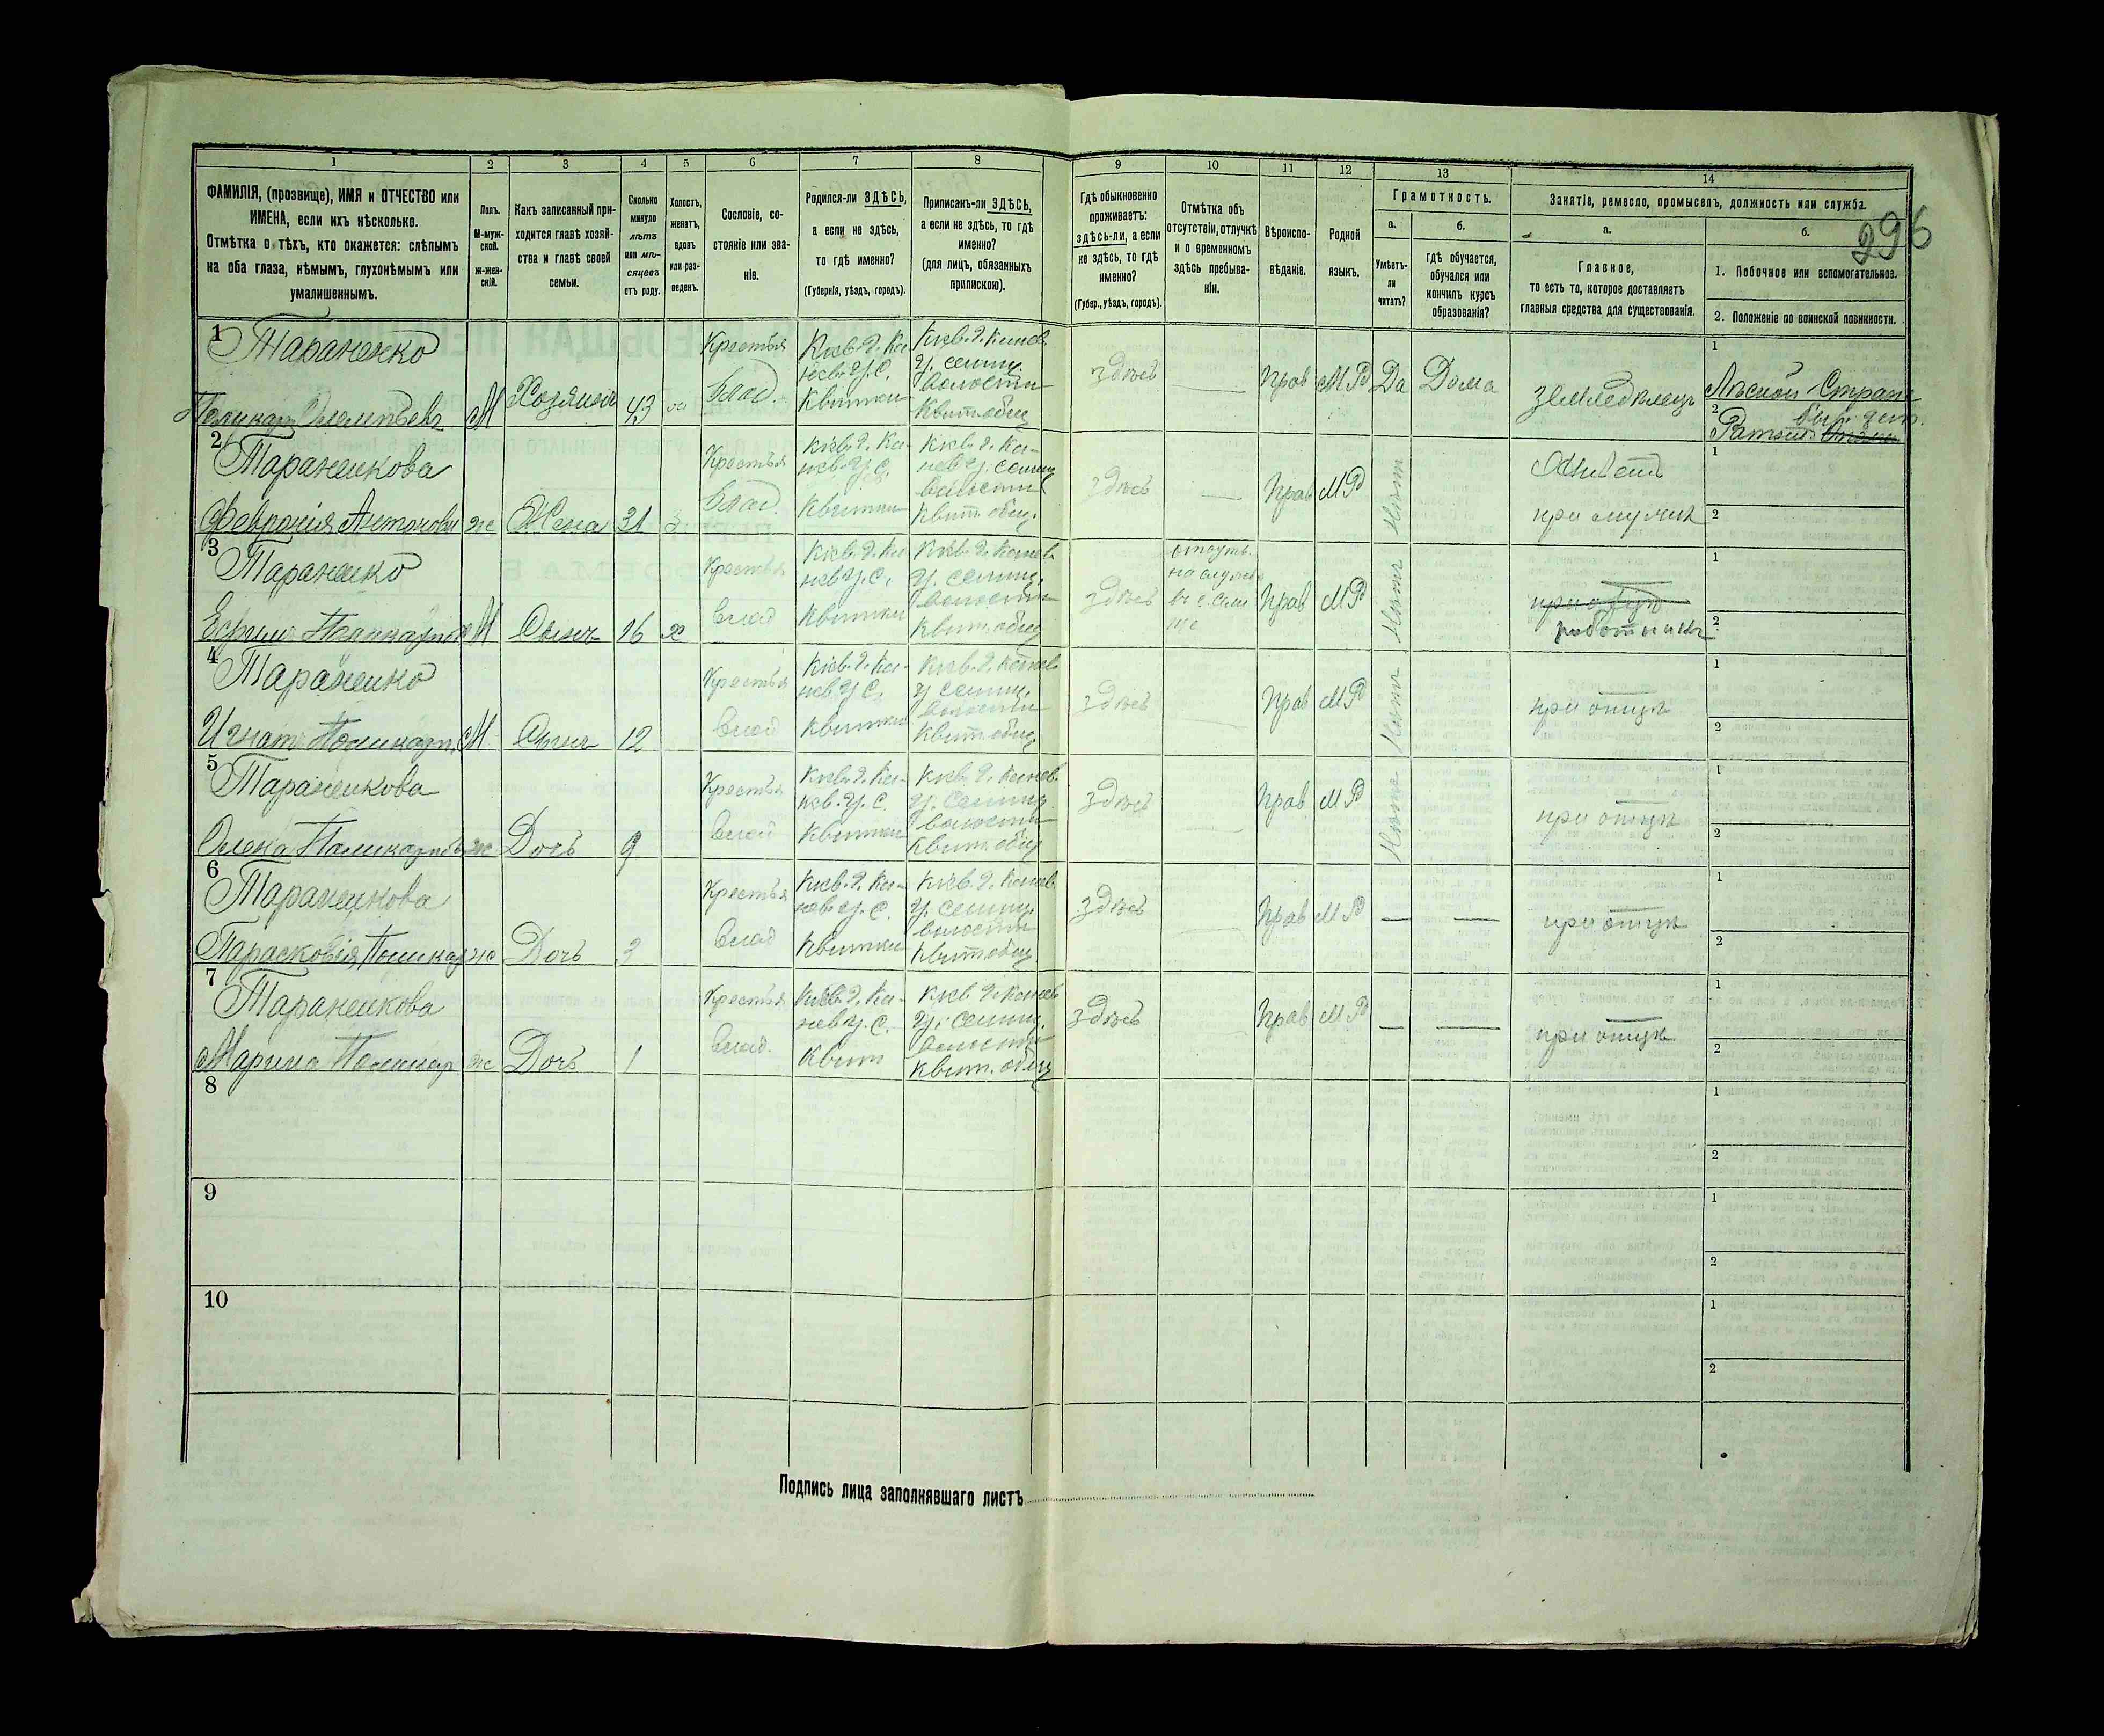 1 2 3 4 5 6 7 8 9 10 11 12 13 14
ФАМИЛІЯ, (прозвище), ИМЯ и ОТЧЕСТВО или
ИМЕНА, если ихъ нѣсколько.
Отмѣтка о тѣхъ, кто окажется: слѣпымъ
на оба глаза, нѣмымъ, глухонѣмымъ или
умалишеннымъ.
Полъ.
М-муж-
ской.
Ж-жен-
скій.
Какъ записанный при-
ходится главѣ хозяй-
ства и главѣ своей
семьи.
Сколько
минуло
лѣтъ
или мѣ-
сяцевъ
отъ роду.
Холостъ,
женатъ,
вдовъ
или раз-
веденъ.
Сословіе, со-
стояніе или зва-
ніе.
Родился-ли ЗДѢСЬ,
а если не здѣсь,
то гдѣ именно?
(Губернія, уѣздъ, городъ).
Приписанъ-ли ЗДѢСЬ,
а если не здѣсь, то гдѣ
именно?
(для лицъ, обязанныхъ
припискою).
Гдѣ обыкновенно
проживаетъ:
здѣсь-ли, а если
не здѣсь, то гдѣ
именно?
(Губер., уѣздъ, городъ).
Отмѣтка объ
отсутствіи, отлучкѣ
и о временномъ
здѣсь пребыва-
ніи.
Вѣроиспо-
вѣданіе.
Родной
языкъ.
Грамотность.
а.
Умѣетъ-
ли
читать?
б.
гдѣ обучается,
обучался или
кончилъ курсъ
образованія?
Занятіе, ремесло, промыселъ, должность или служба.
296
а.
Главное,
то есть то, которое доставляетъ
главныя средства для существованія.
б.
1. Побочное или вспомогательное.
2. Положеніе по воинской повинности.
1
Тараненко
М Хозяинъ 43
Крестья
Влад.
Кіев. г. Ка
нев. у. с.
Квитки
Кіев. г. Канев.
у. селищ.
волости
Квит. общ
здѣсь
—
Прав МР Да Дома
земледѣлецъ
1
Лѣсной Страж
2
2
Тараненкова
Февронія Антонов ж Жена 31 з
Крестья
Влад.
Кіев. г. Ка-
нев. у. с.
Квитки
Кіев. г. Ка-
нев. у. селищ
волости
Квит. общ.
здѣсь
—
Прав МР Нѣт
при мужѣ
1
2
3
Тараненко
М Сынъ 16 х
Крестья
влад
Кіев. г. Ка
нев. у. с.
Квитки
Кіев. г. Канев
у. селищ.
волости
Квит. общ
здѣсь
Прав МР Нѣт
при отцѣ
работникъ
1
2
4
Тараненко
Игнат Поликарп. М Сынъ 12
Крестья
влад
Кіев. г. Ка-
нев. у. с.
Квитки
Кіев. г. Канев
у. селищ.
волости
Квит. общ.
здѣсь
—
Прав МР Нѣт
при отцѣ
1
2
5
Тараненкова
Олена Поликарпов ж Дочь 9
Крестья
влад
Кіев. г. Ка-
нев. у. с.
Квитки
Кіев. г. Канев
у. селищ.
волости
Квит. общ
здѣсь
—
Прав МР Нѣт
при отцѣ
1
2
6
Тараненкова
Парасковія Поликар ж Дочь 3
Крестья
влад
Кіев. г. Ка-
нев. у. с.
Квитки
Кіев. г. Канев
у. селищ.
волости
Квит. общ.
здѣсь
—
Прав МР — —
при отцѣ
1
2
7
Тараненкова
Марина Поликар ж Дочь 1
Крестья
влад.
Кіев. г. Ка-
нев. у. с.
Квит
Кіев. г. Канев
у. селищ.
волости
Квит. общ
здѣсь
Прав МР — —
при отцѣ
1
2
8
1
2
9
1
2
10
1
2
Подпись лица заполнявшаго листъ